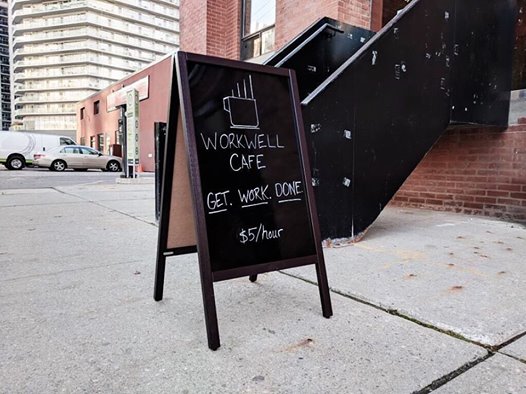 WORKWELL
CAFE
GET. WORK. DONE.
$5/hour